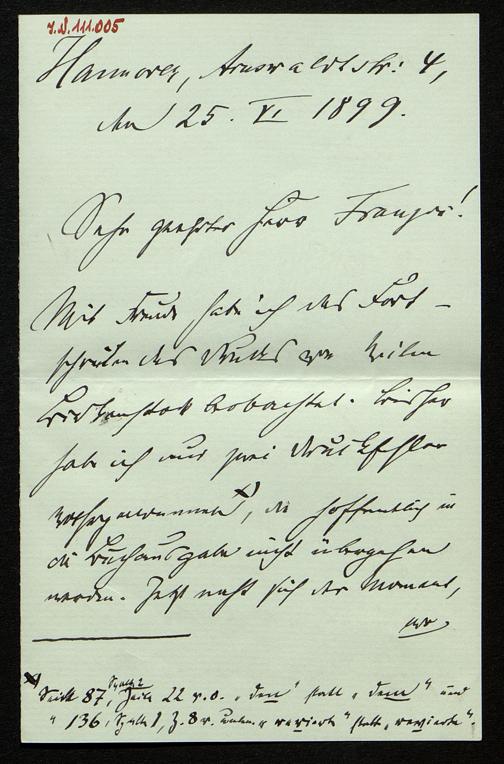 J.N. 111.005
Hannover, Arnswaldtstr. 4,
den 25. VI 1899.
Sehr geehrter Herr Franzos!
Mit Freude habe ich das Fort-
schreiten des Drucks von
beobachtet. Bisher
habe ich nur zwei Druckfehler
wahrgenommen x), die hoffentlich in
die Buchausgabe nicht übergehen
werden. Jetzt naht sich der Moment,
wo
x) Seite 87, Spalte 2 Zeile 22 v. o. „den“ statt „dem“ und
" 136, Spalte 1, Z. 8 v. unten